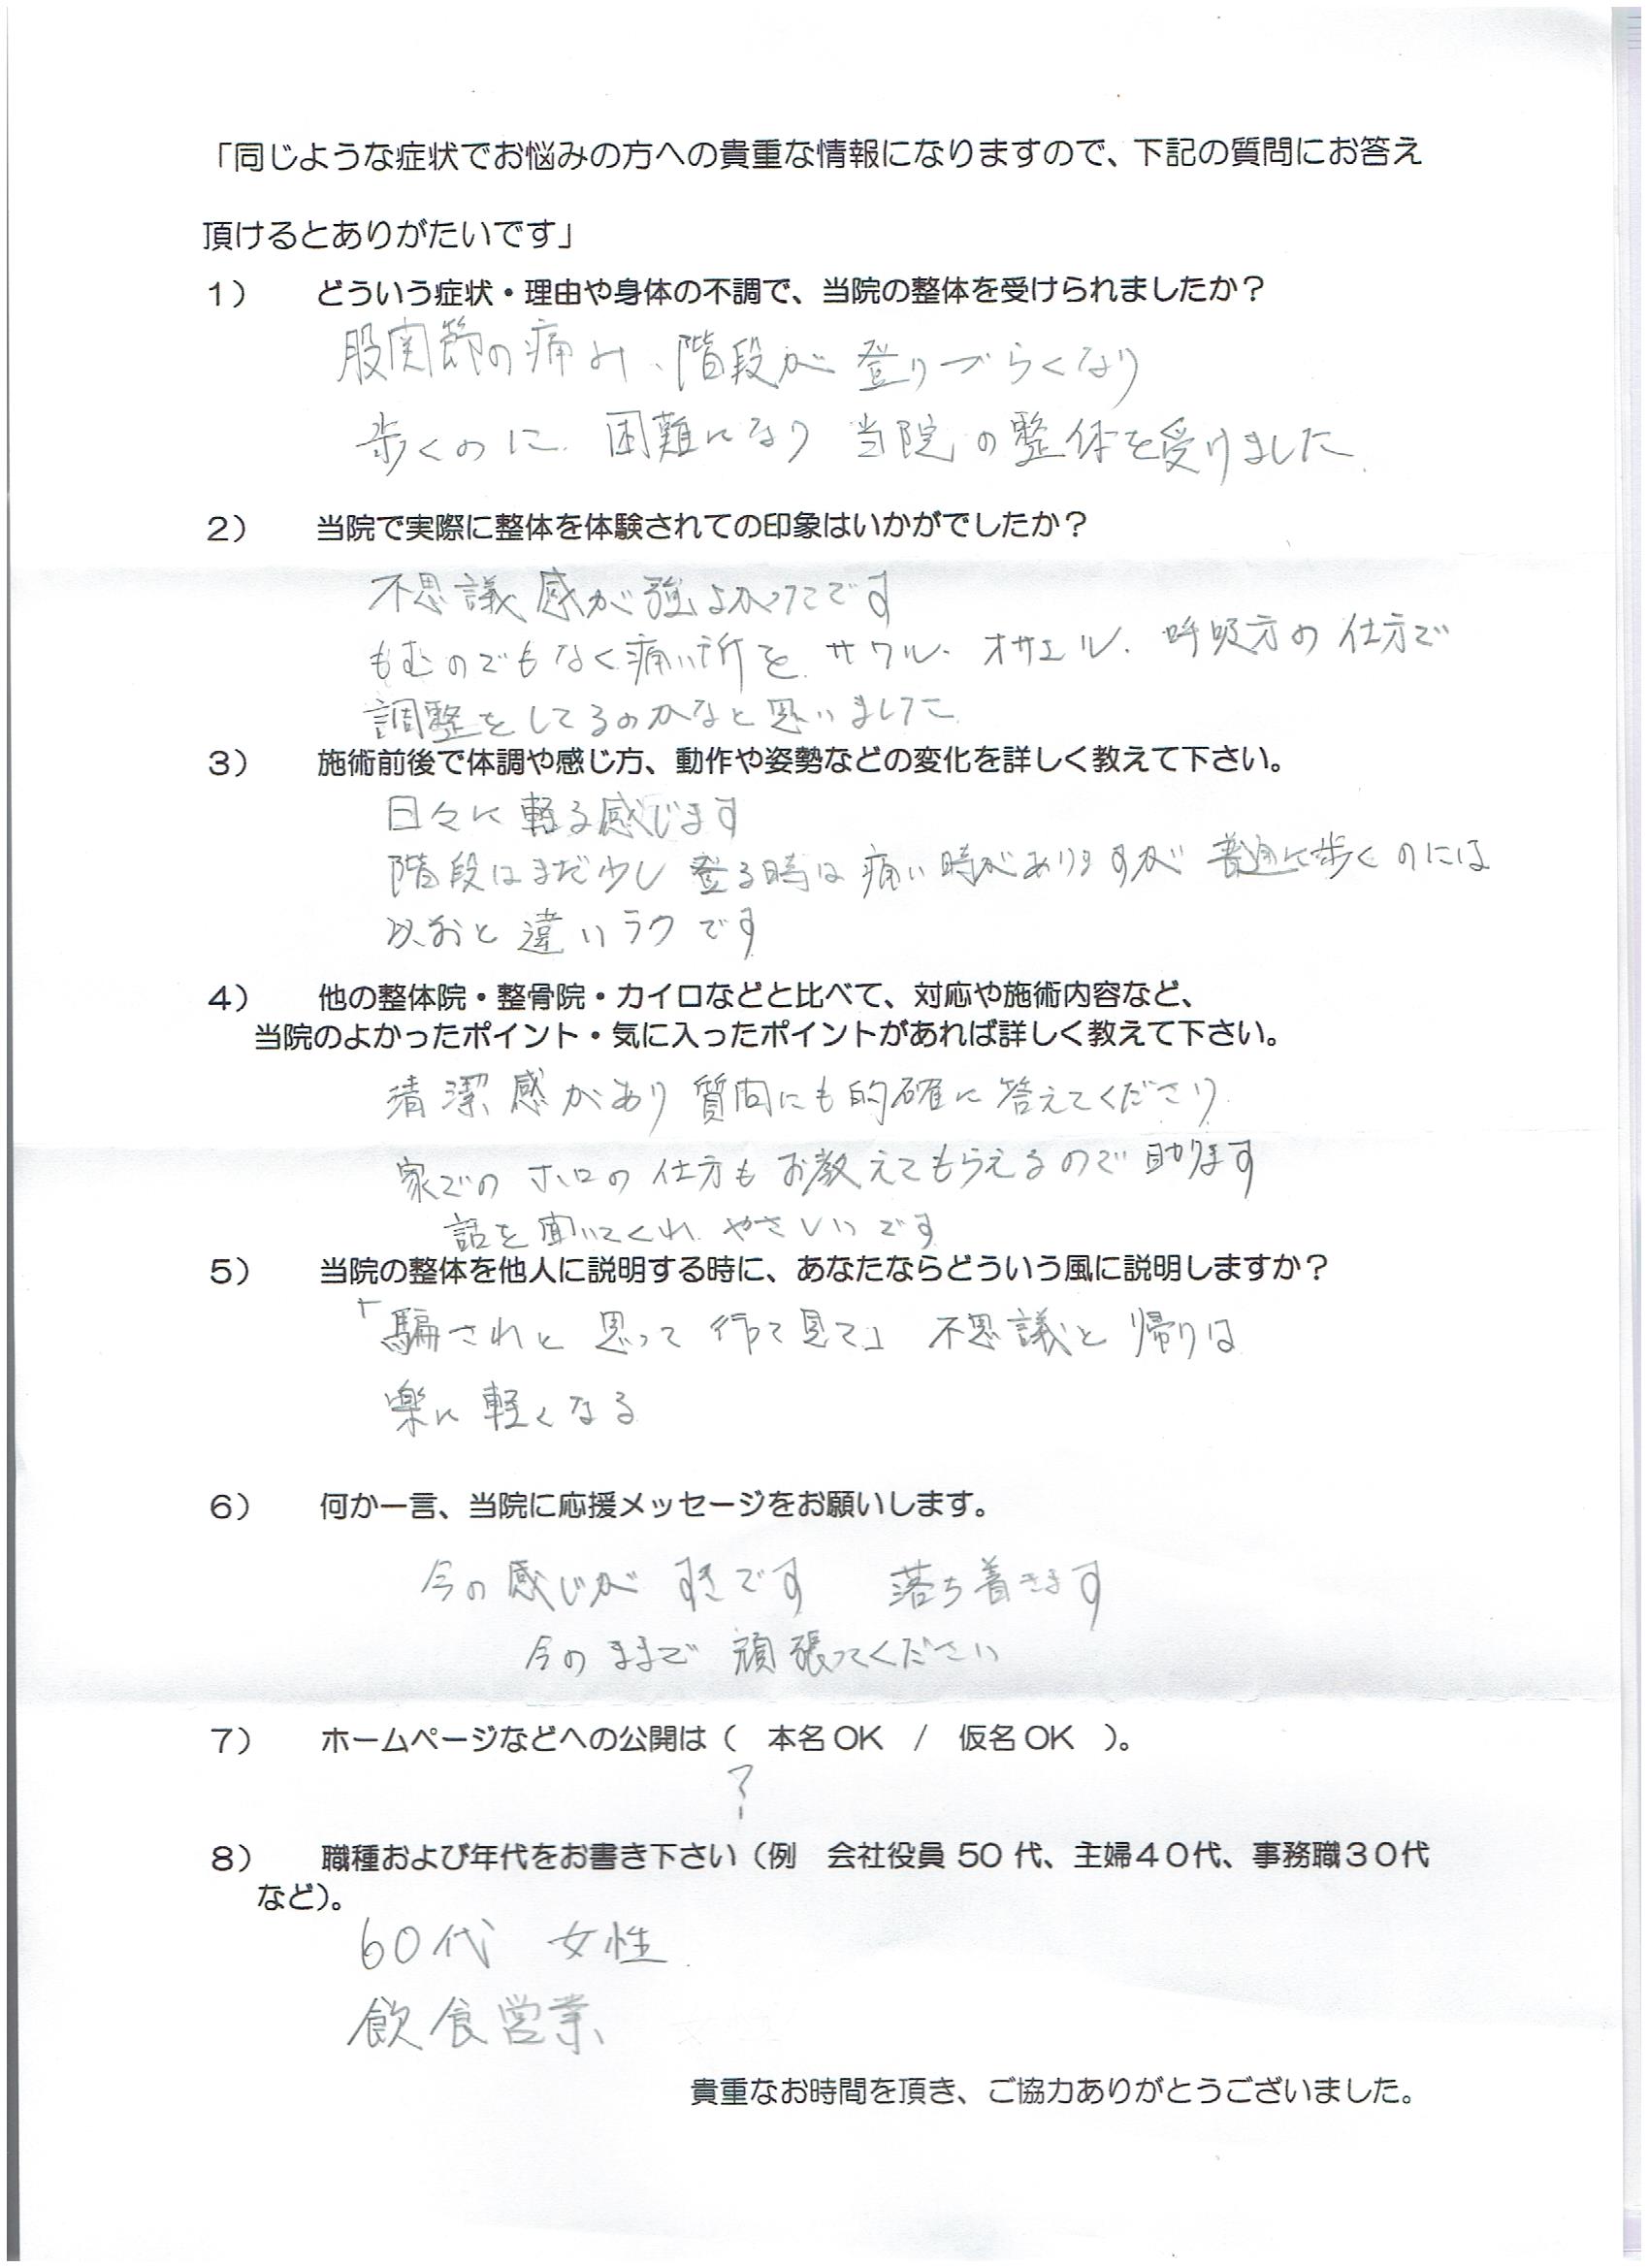 「同じような症状でお悩みの方への貴重な情報になりますので、下記の質問にお答え
頂けるとありがたいです」
1） どういう症状・理由や身体の不調で、当院の整体を受けられましたか？
股関節の痛み、階段が登りづらくなり
歩くのに困難になり 当院の整体を受けました
2） 当院で実際に整体を体験されての印象はいかがでしたか？
不思議感が強よかったです
もむのでもなく痛い所を サワル、オサエル、呼吸方の仕方で
調整をしてるのかなと思いました
3） 施術前後で体調や感じ方、動作や姿勢などの変化を詳しく教えて下さい。
日々に軽る感じます
階段はまだ少し 登る時は痛い時がありますが 普通に歩くのには
以お と違いラクです
4） 他の整体院・整骨院・カイロなどと比べて、対応や施術内容など、
当院のよかったポイント・気に入ったポイントがあれば詳しく教えて下さい。
清潔感があり 質問にも的確に答えてくださり
家での ホロの仕方もお教えてもらえるので助ります
話を聞いてくれ やさしいです
5） 当院の整体を他人に説明する時に、あなたならどういう風に説明しますか？
「騙されと思って行って見て」 不思議と帰りは
楽に軽くなる
6） 何か一言、当院に応援メッセージをお願いします。
今の感じがすきです 落ち着きます
今のままで頑張ってください
7） ホームページなどへの公開は（ 本名OK / 仮名OK ）。
？
8） 職種および年代をお書き下さい（例 会社役員 50 代、主婦４０代、事務職３０代
など）。
60代 女性
飲食営業
貴重なお時間を頂き、ご協力ありがとうございました。